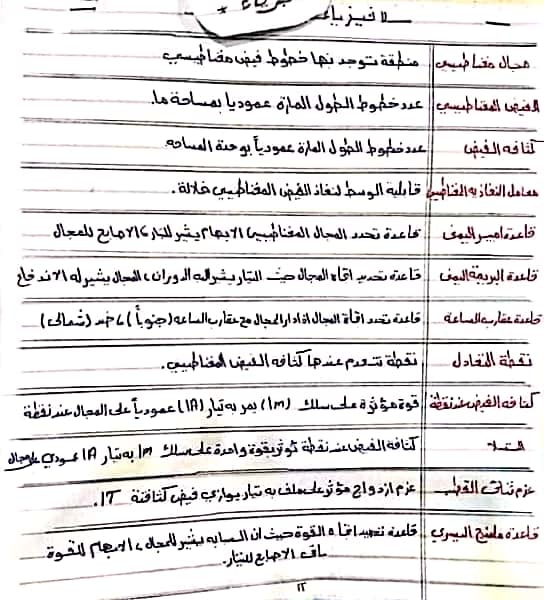 فيزياء
مجال مغناطيسي منطقة توجد بها خطوط فيض مغناطيسي
الفيض المغناطيسي عدد خطوط الطول المارة عموديا بمساحة ما.
كثافه الفيض عدد خطوط الطول المارة عمودياً بوحدة المساحه
معامل النفاذيه المغناطيسي قابلية الوسط لنفاذ الفيض المغناطيسي خلاله.
قاعدة امبير اليمنى قاعدة تحدد المجال المغناطيسي الابهام يشير للتيار والاصابع للمجال
قاعدة البريمة اليمنى قاعدة تحديد اتجاه المجال حيث التيار يشير له الدوران، المجال يشير له الاندفاع
قاعدة عقارب الساعه قاعدة تحدد اتجاة المجال اذا دار المجال مع عقارب الساعه (جنوباً) ضد (شمالى)
نقطة التعادل نقطة تنعدم عندها كثافه الفيض المغناطيسي.
كثافه الفيض عند نقطة قوة مؤثرة على سلك (1m) يمر به تيار (1A) عمودياً على المجال عند نقطة
التسلا كثافة الفيض عند نقطة تؤثر بقوة واحدة على سلك 1m به تيار 1A عمودي على مجال
عزم ثنائى القطب عزم ازدواج مؤثر على ملف به تيار يوازي فيض كثافتة 1T.
قاعدة فلمنج اليسرى قاعدة تحديد اتجاه القوة حيث ان السبابه يشير للمجال، الابهام للقوة
باقى الاصابع للتيار.
١٢